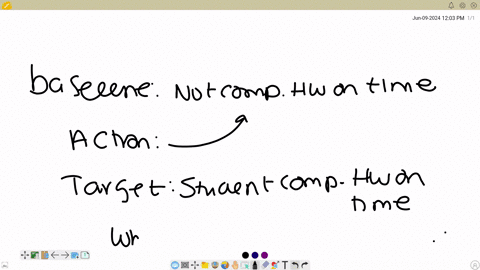 Jun-09-2024 12:03 PM 1/1
baseline: Not comp. HW on time
Action:
Target: Student comp. HW on
time
Wh